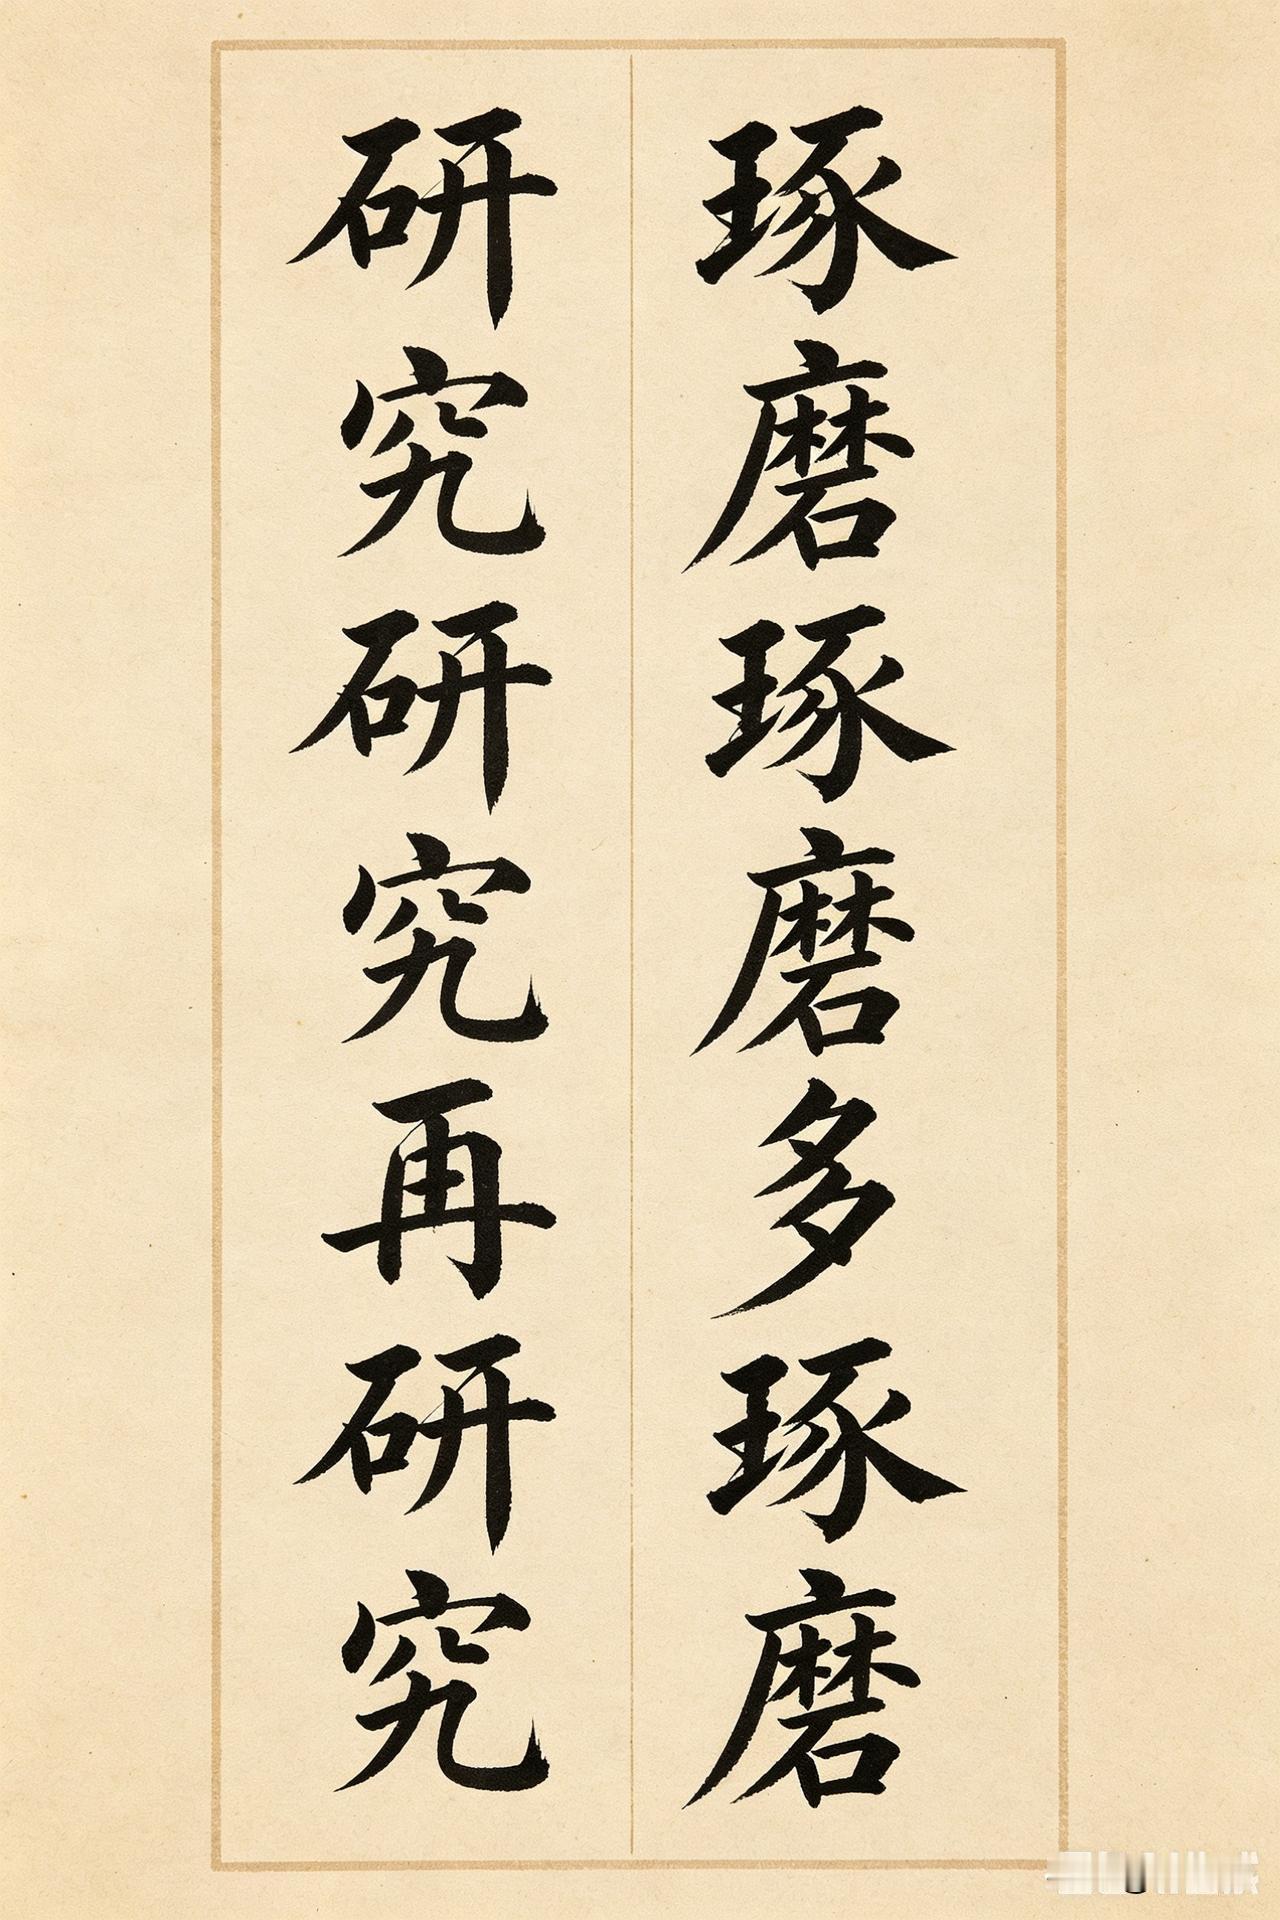 琢磨琢磨多琢磨
研究研究再研究